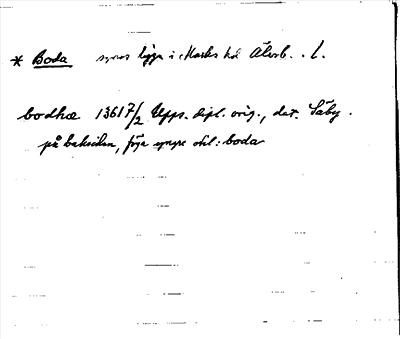 * Boda synes ligga i Marks hd Älvsb. L.
bodhæ 1361 7/2 Upps. dipl. orig., dat. Säby.
på baksidan, föga yngre stil: boda